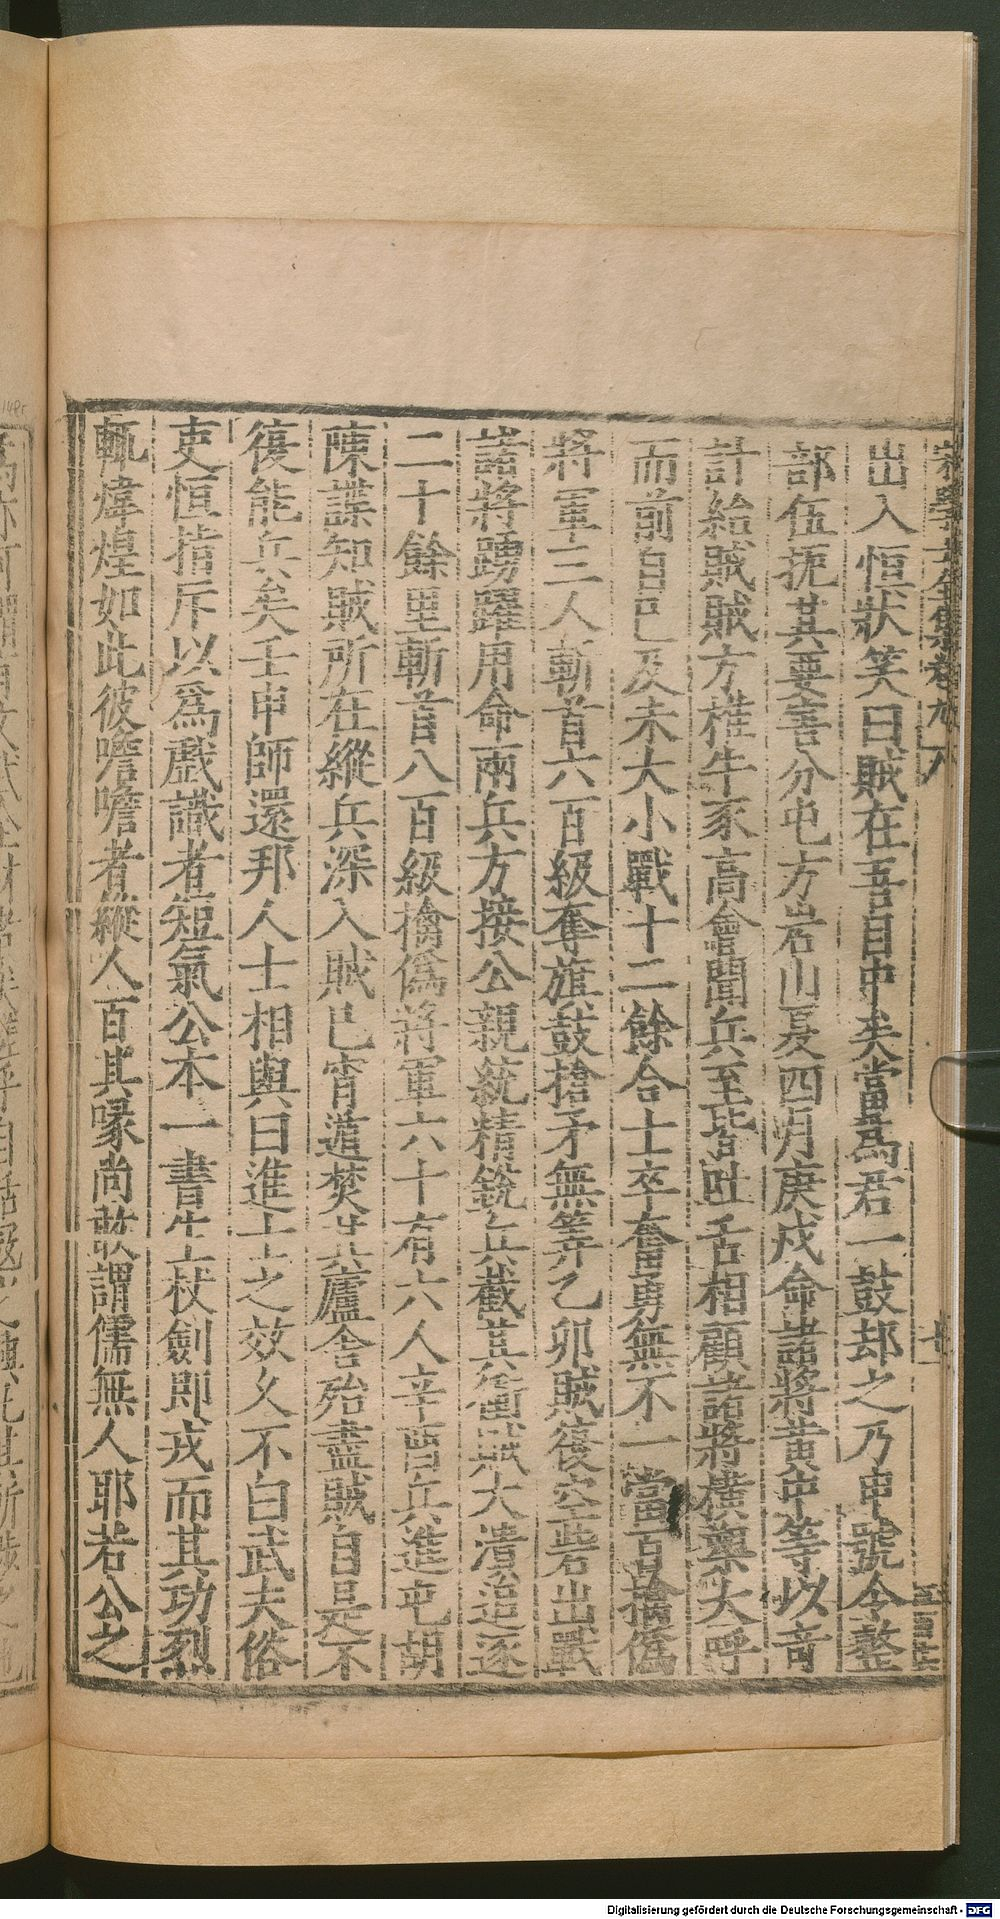 宋學士全集卷九八
出入恒狀笑曰賊在吾目中矣當爲君一鼓却之乃申號令整
部伍扼其要害分屯方岩山夏四月庚戍命諸將黄中等以奇
計給賊賊方椎牛豕高會聞兵至皆吐舌相顧諸將横槊大呼
而前自巳及未大小戰十二餘合士卒奮勇無不一當百擒僞
將軍三人斬首六百級奪旗鼓槍矛無筭乙卯賊復空砦出戰
諸將踴躍用命兩兵方接公親統精銳兵截其衝賊大潰追逐
二十餘里斬首八百級擒僞將軍六十有六人辛酉兵進屯胡
陳諜知賊所在縱兵深入賊已宵遁焚其廬舍殆盡賊自是不
復能兵矣壬申師還邦人士相與曰進士之效久不白武夫俗
吏恒指斥以爲戲識者短氣公本一書生杖劍即戎而其功烈
輒煒煌如此彼噡噡者縱人百其喙尚敢謂儒無人耶若公之
Digitalisierung gefördert durch die Deutsche Forschungsgemeinschaft - DFG